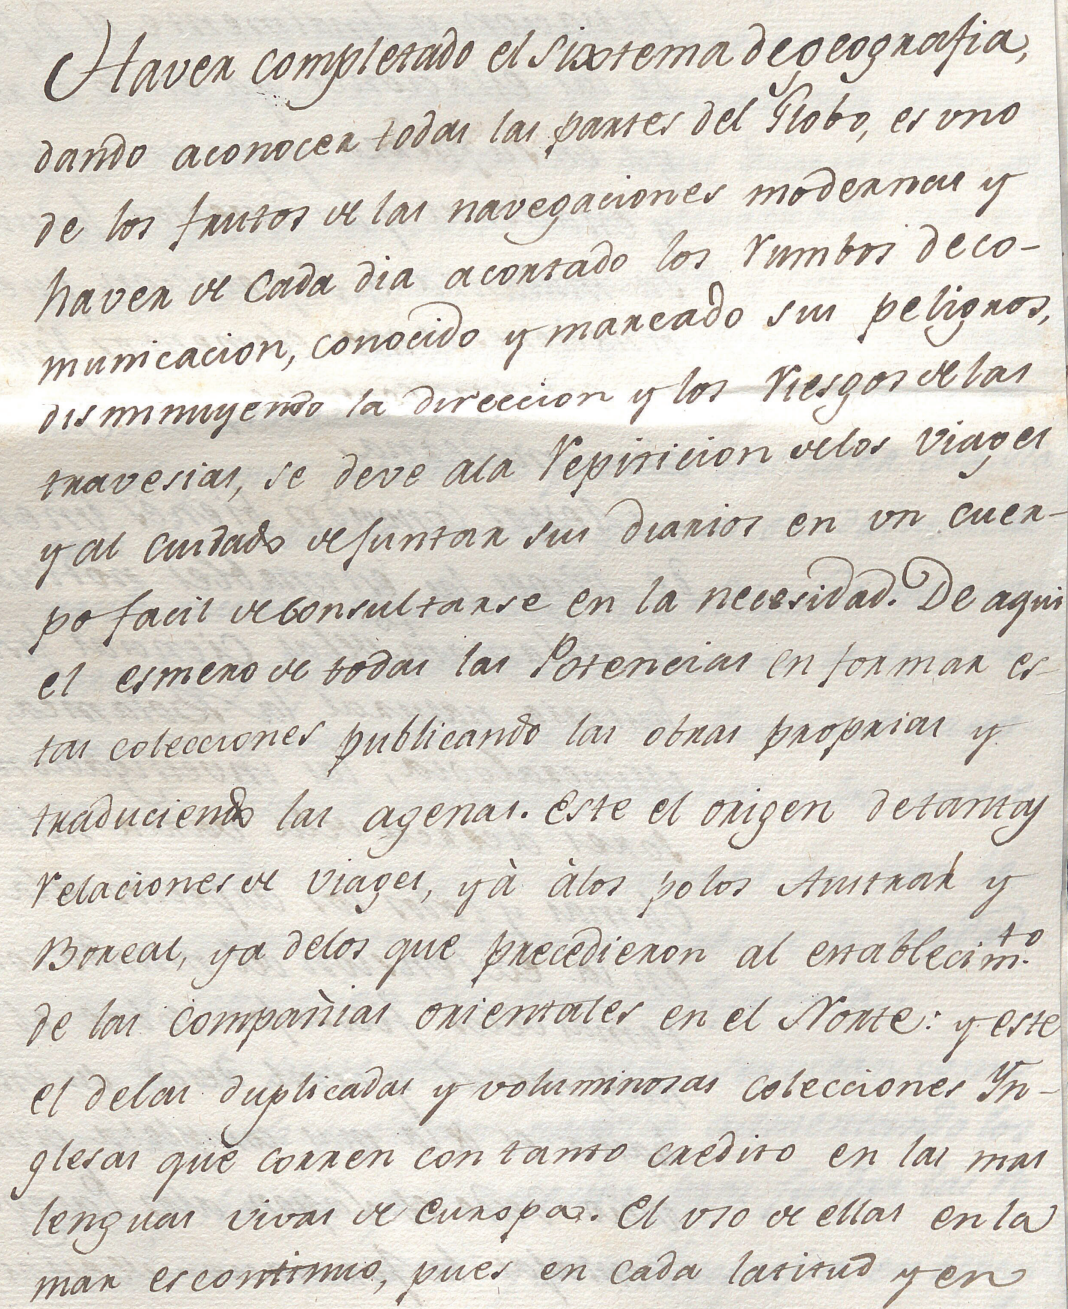 Haver completado el Sixtema de geografia,
dando aconocer todas las partes del Globo, es uno
de los frutos de las navegaciones modernas y
haver de cada dia acortado los rumbos de co-
municacion, conocido y marcado sus peligros,
disminuyendo la direccion y los riesgos de las
travesias, se deve ala repiticion delos viages
y al cuidado de juntar sus diarios en un cuer-
po facil de consultarse en la necesidad. De aqui
el esmero de todas las Potencias en formar es-
tas colecciones publicando las obras proprias y
traduciendo las agenas. Este el origen de tantas
relaciones de viages, yà àlos polos Austral y
Boreal, ya delos que precedieron al establecim.to
de las compañias orientales en el Norte: y este
el delas duplicadas y voluminosas colecciones Yn-
glesas que corren con tanto credito en las mas
lenguas vivas de Europa. El uso de ellas en la
mar es continuo, pues en cada latitud y en